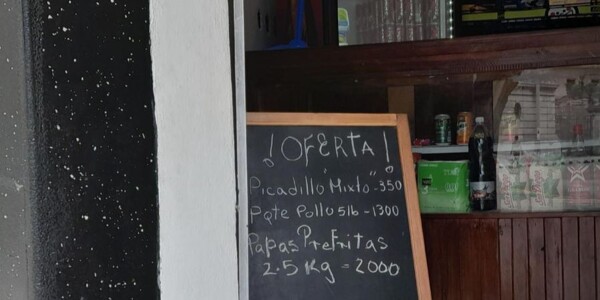 ¡OFERTA!
Picadillo "Mixto" - 350
Pqte Pollo 5lb - 1300
Papas PreFritas
2.5 Kg = 2000